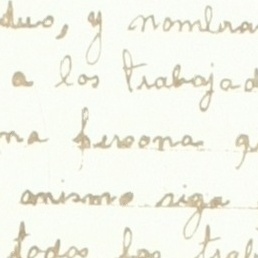 duo, y nombra
a los trabaja
na persona q
anismo siga
todos los tra